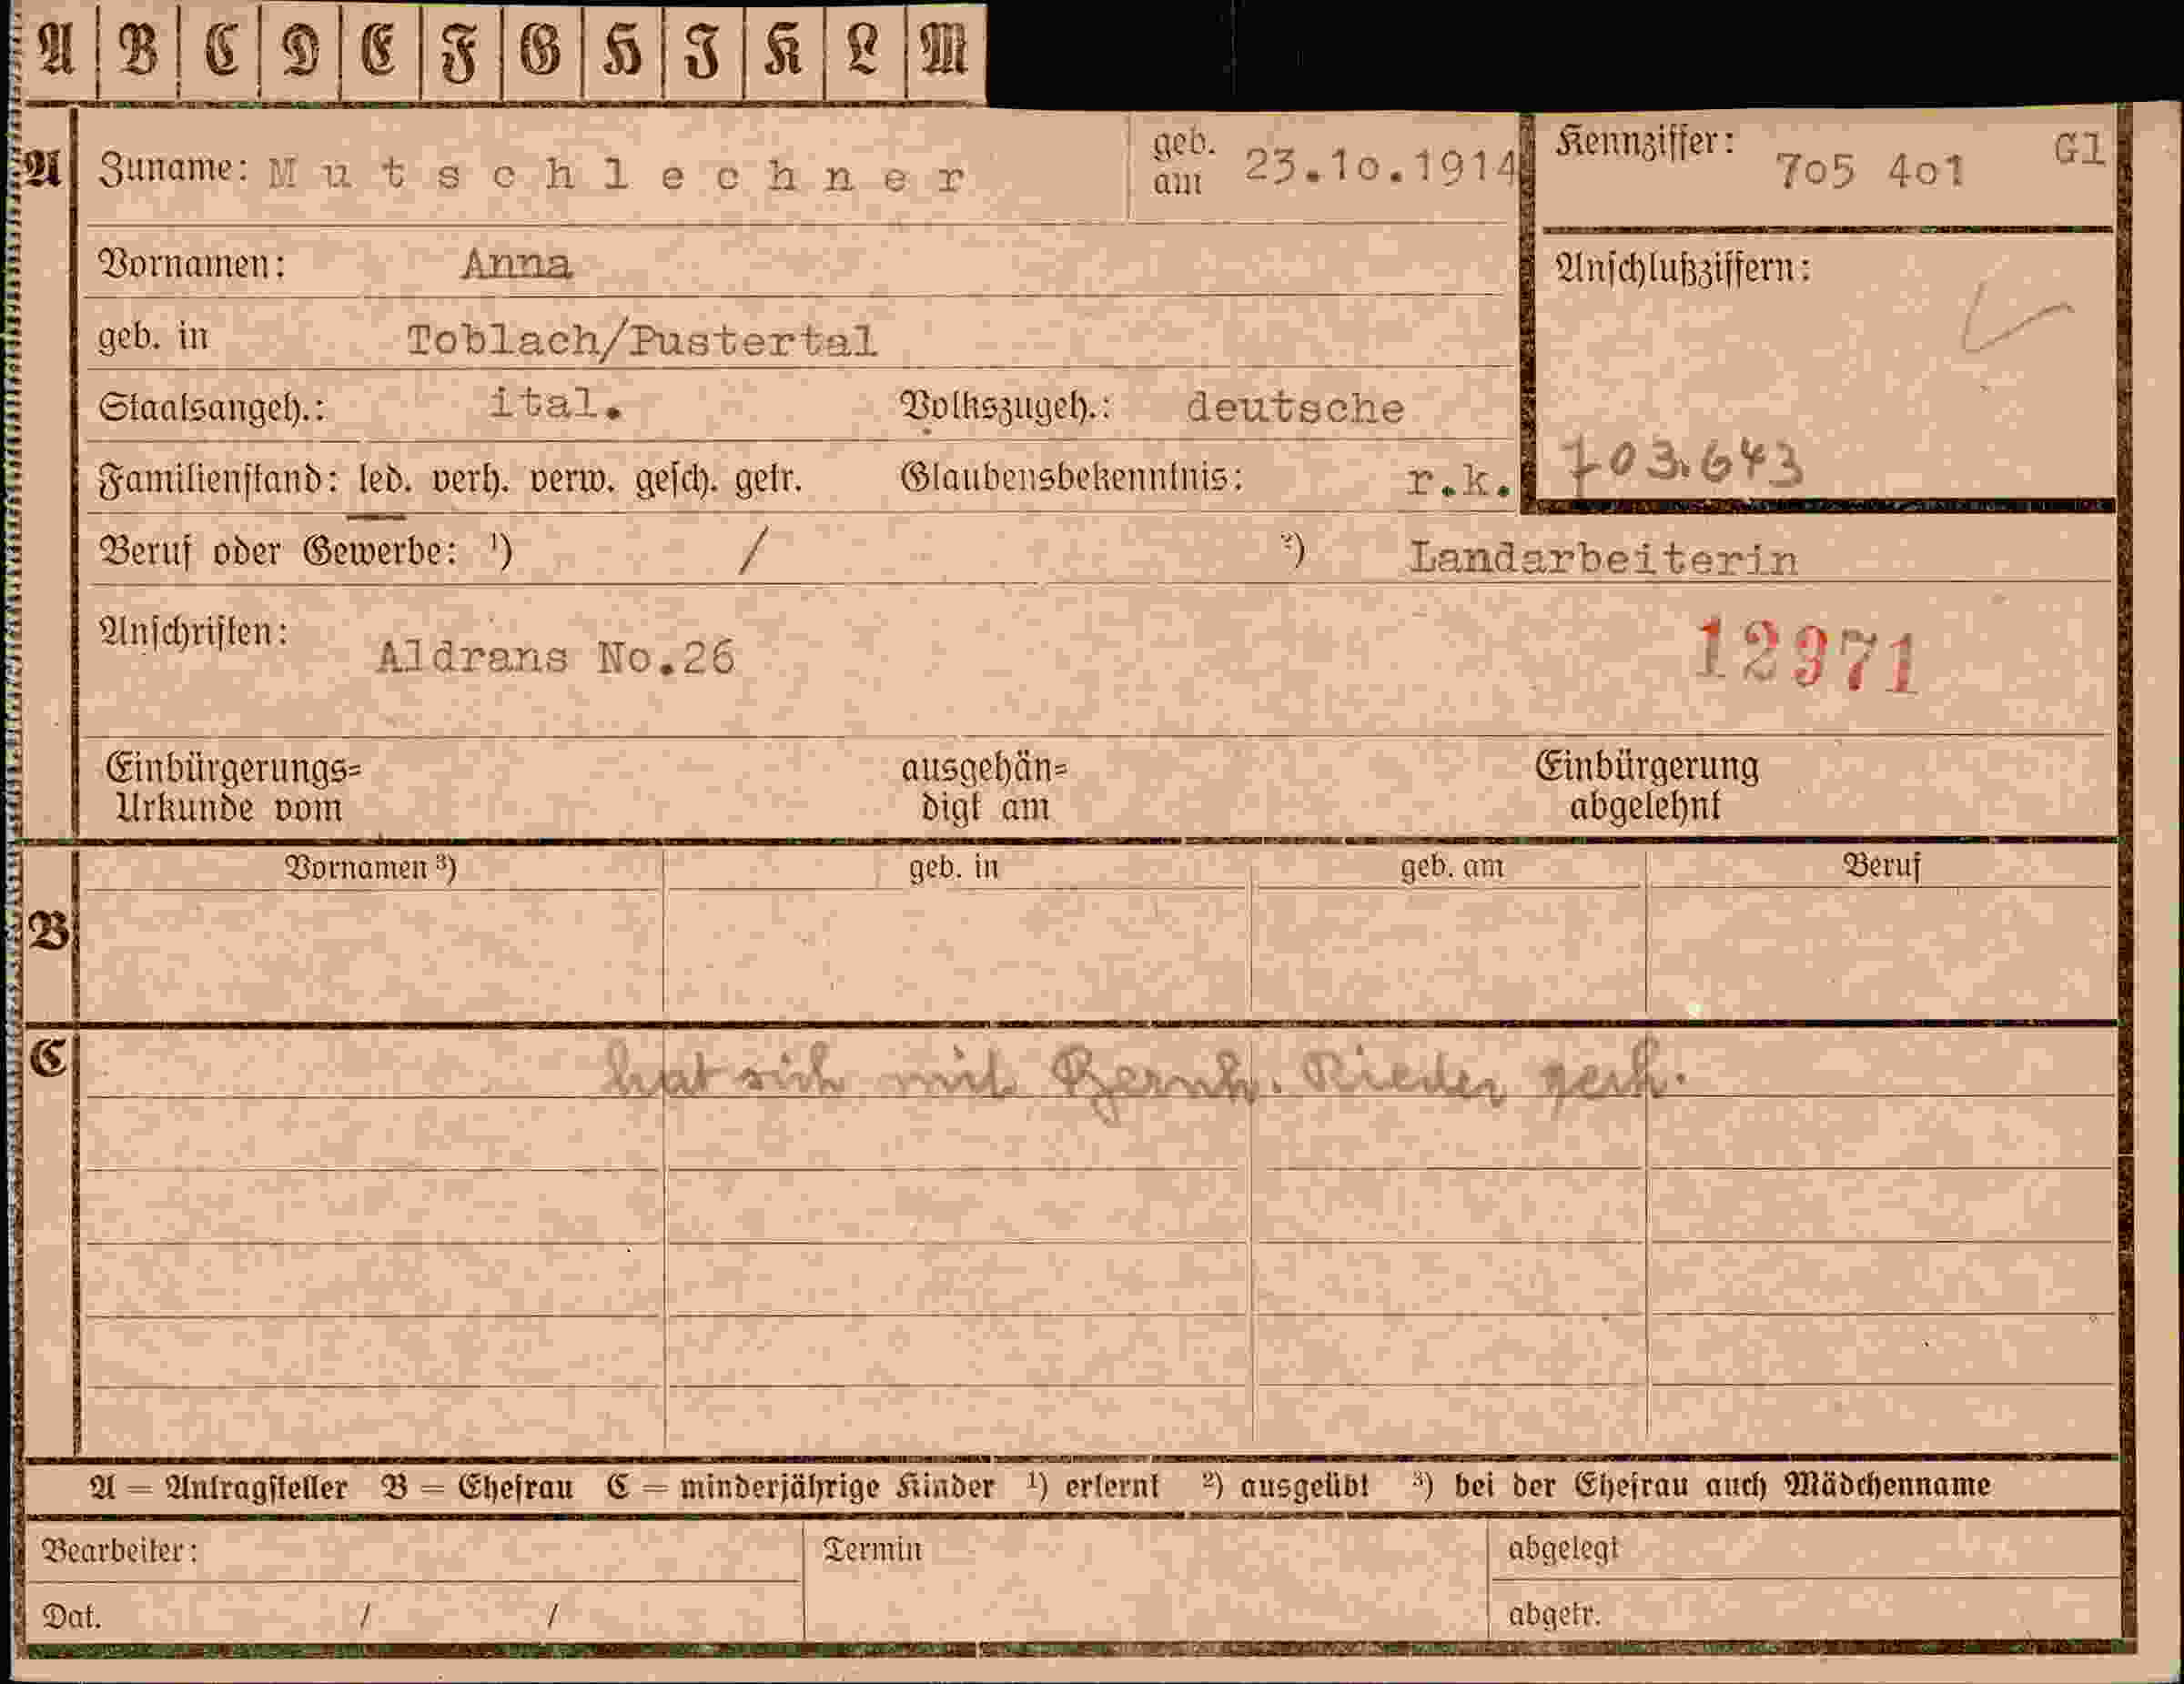 A B C D E F G H J K L M
A Zuname: Mutschlechner geb. am 23.10.1914 Kennziffer: 705 401 Gl
Vornamen: Anna
Anschlußziffern:
geb. in Toblach/Pustertal
Staatsangeh.: ital. Volkszugeh.: deutsche
703.643
Familienstand: led. verh. verw. gesch. getr. Glaubensbekenntnis: r.k.
Beruf oder Gewerbe: ¹) / ²) Landarbeiterin
Anschriften: Aldrans No.26
12971
Einbürgerungs= ausgehän= Einbürgerung
Urkunde vom digt am abgelehnt
Vornamen ³) geb. in geb. am Beruf
B
C hat sich mit Bernh. Rieder verh.
A = Antragsteller B = Ehefrau C = minderjährige Kinder ¹) erlernt ²) ausgeübt ³) bei der Ehefrau auch Mädchenname
Bearbeiter: Termin abgelegt
Dat. / / abgetr.